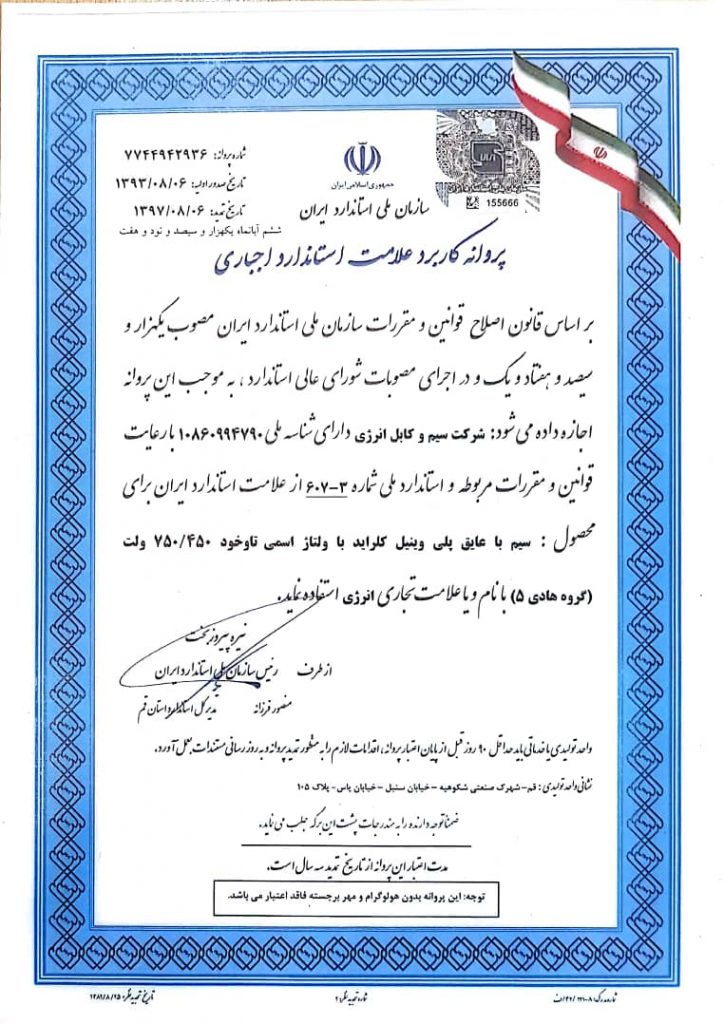 شماره پروانه: ۷۷۴۴۹۴۲۹۳۶
تاریخ صدور اولیه: ۱۳۹۳/۰۸/۰۶
تاریخ تمدید: ۱۳۹۷/۰۸/۰۶
ششم آبانماه یکهزار و سیصد و نود و هفت
جمهوری اسلامی ایران
سازمان ملی استاندارد ایران
155666
پروانه کاربرد علامت استاندارد اجباری
بر اساس قانون اصلاح قوانین و مقررات سازمان ملی استاندارد ایران مصوب یکهزار و
سیصد و هفتاد و یک و در اجرای مصوبات شورای عالی استاندارد ، به موجب این پروانه
اجازه داده می شود: شرکت سیم و کابل انرژی دارای شناسه ملی ۱۰۸۶۰۹۹۴۷۹۰ با رعایت
قوانین و مقررات مربوطه و استاندارد ملی شماره ۳-۶۰۷ از علامت استاندارد ایران برای
محصول : سیم با عایق پلی وینیل کلراید با ولتاژ اسمی تاوخود ۷۵۰/۴۵۰ ولت
(گروه هادی ۵) با نام و یا علامت تجاری انرژی استفاده نماید.
نیره پیروزبخت
از طرف رئیس سازمان ملی استاندارد ایران
منصور فرزانه مدیر کل استاندارد استان قم
واحد تولیدی یا خدماتی باید حداقل ۹۰ روز قبل از پایان اعتبار پروانه، اقدامات لازم را به منظور تمدید پروانه و به روز رسانی مستندات بعمل آورد.
نشانی واحد تولیدی : قم- شهرک صنعتی شکوهیه - خیابان سنبل - خیابان یاس- پلاک ۱۰۵
ضمناً توجه دارنده را به مندرجات پشت این برگه جلب می نماید.
مدت اعتبار این پروانه از تاریخ تمدید سه سال است.
توجه: این پروانه بدون هولوگرام و مهر برجسته فاقد اعتبار می باشد.